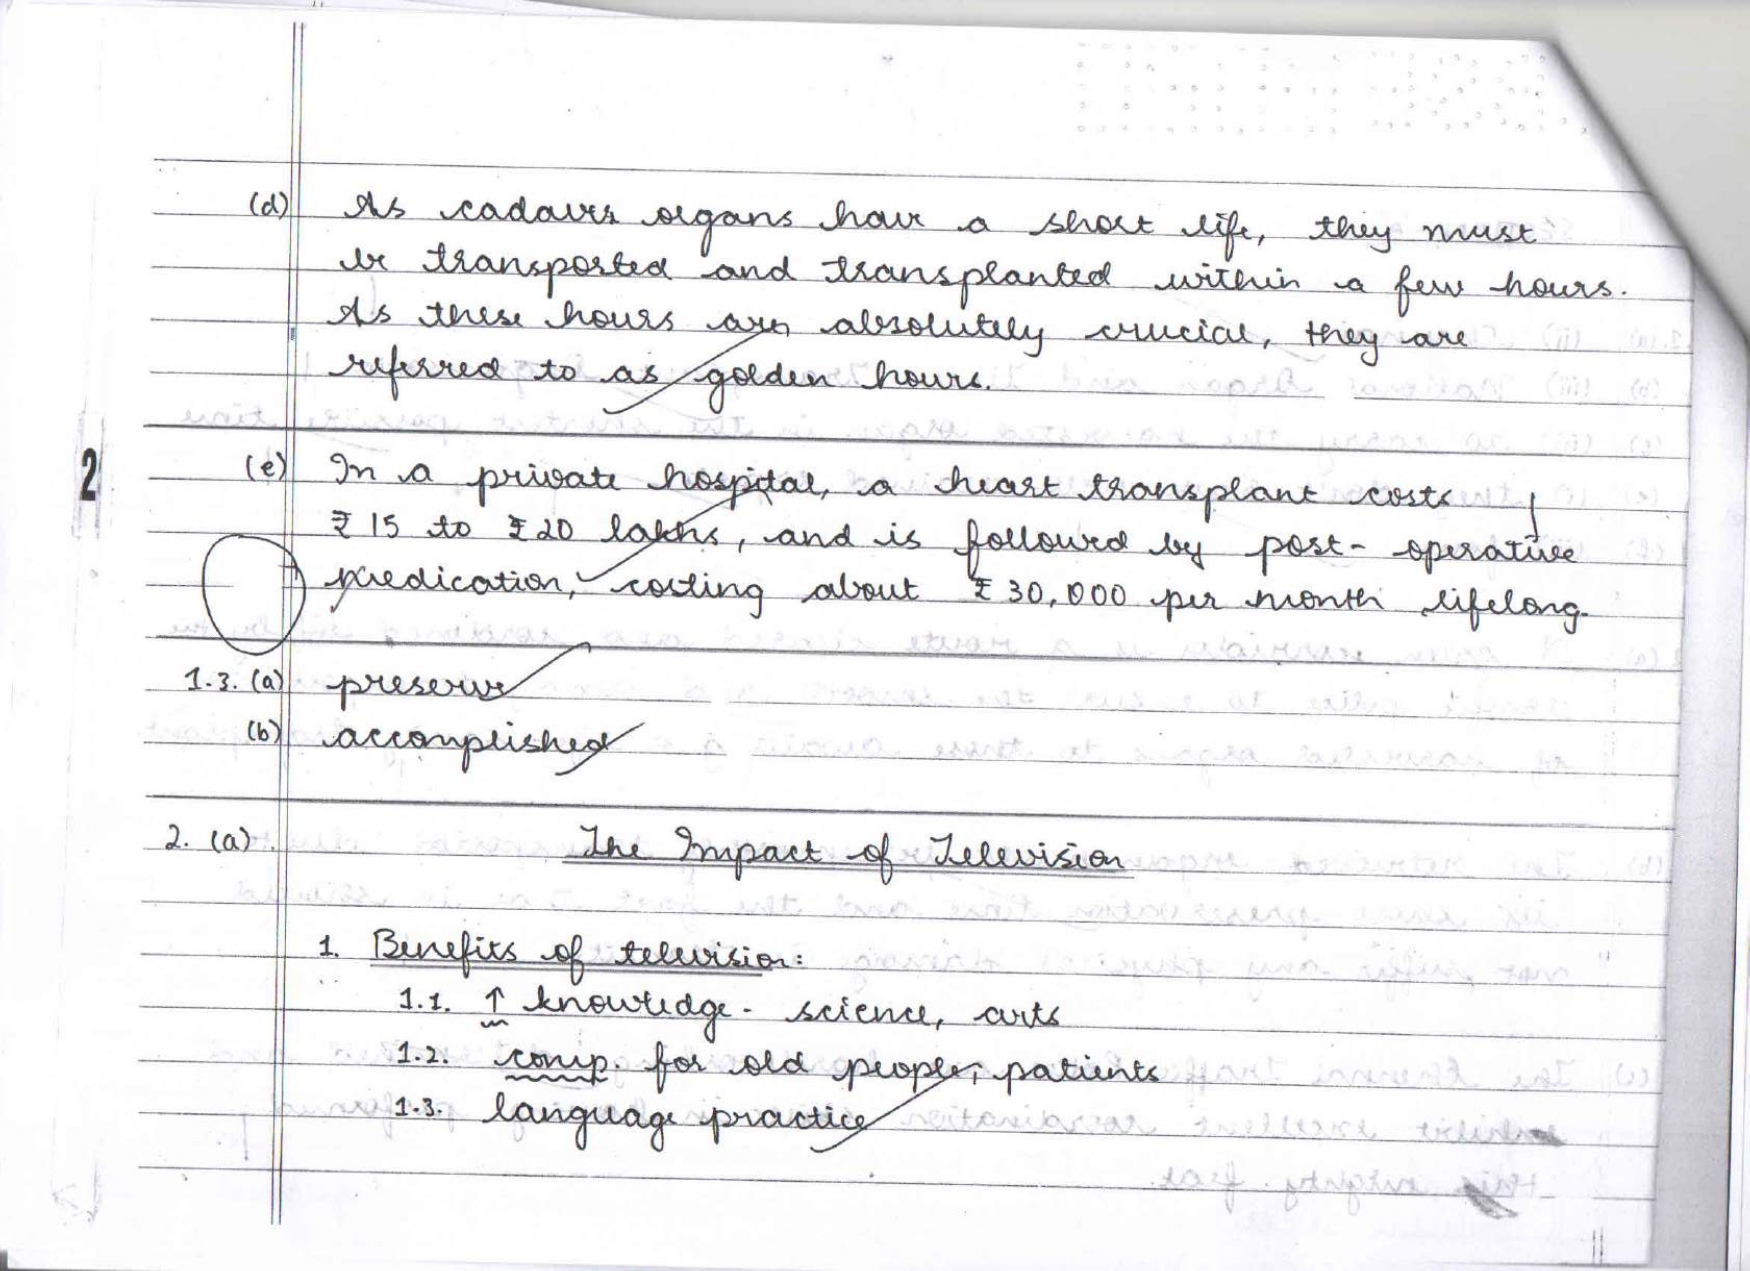 (d) As cadavers organs have a short life, they must
be transported and transplanted within a few hours.
As these hours are absolutely crucial, they are
referred to as golden hours.
2
(e) In a private hospital, a heart transplant costs
₹15 to ₹20 lakhs, and is followed by post-operative
medication, costing about ₹30,000 per month lifelong.
1.3. (a) preserve
(b) accomplished
2. (a) The Impact of Television
1. Benefits of television:
1.1. ↑ knowledge - science, arts
1.2. comp. for old people, patients
1.3. language practice